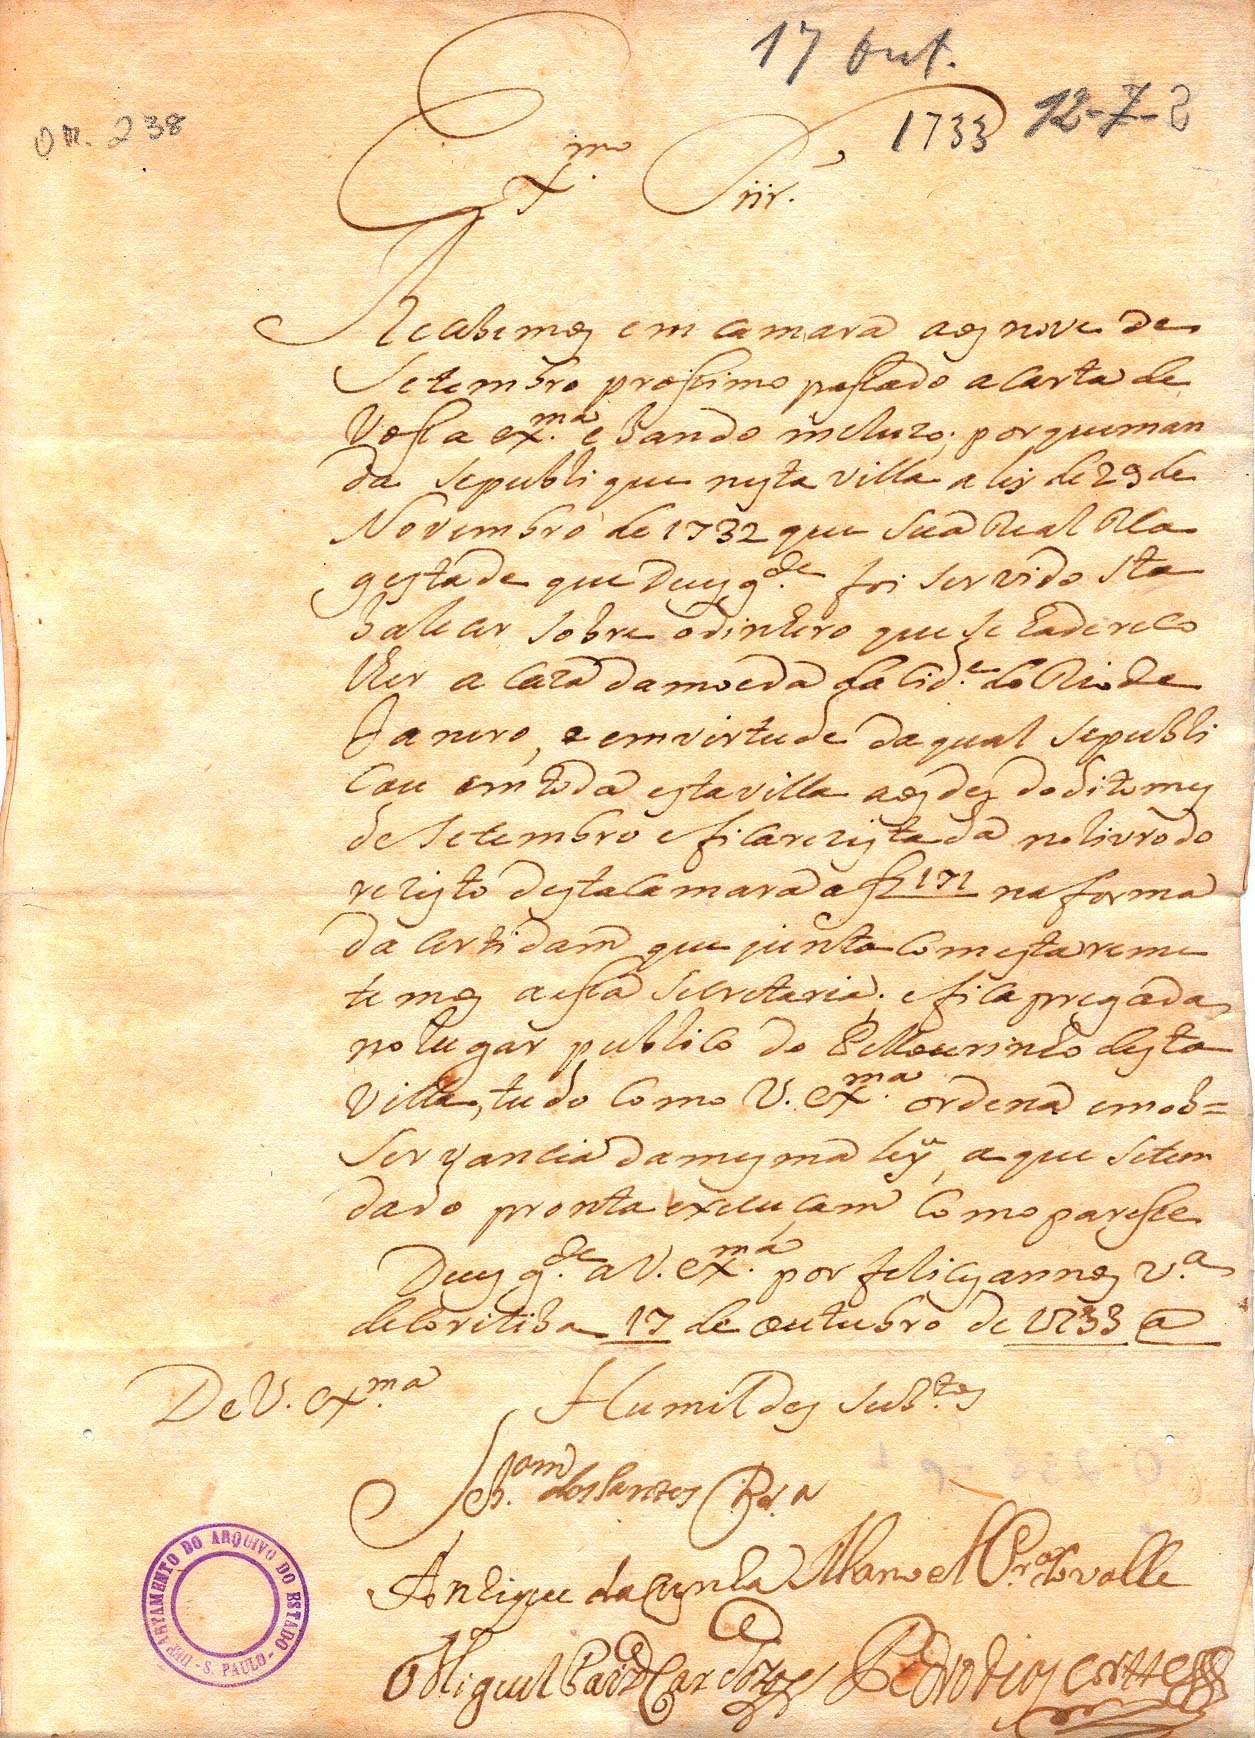 17 Out.
1733 12-7-2
OR. 238
Ex.mo Snr.
Recebemos em camara aos nove de
Setembro prossimo passado a carta de
Vossa ex.ma e bando incluzo, por que man
da se publique nesta villa a ley de 29 de
Novembro de 1732 que sua Real Ma
gestade que Deus g.de foi servido sta
balecer sobre o dinhero que se hade reco
lher a caza da moeda da Cid.e do Rio de
Janero, e em virtude da qual se publi
cou em toda esta villa aos des do dito mes
de Setembro e fica rezistada no livro do
rezisto desta camara a f 171 na forma
da certidam que junto com esta reme
temos a essa secretaria, e fica pregada
no lugar publico do Pellourinho desta
Villa, tudo como V. ex.ma ordena em ob=
servancia da mesma ley, a que se tem
dado pronta execuçam como paresse
Deus g.de a V. ex.ma por felices annos V.a
de Coritiba 17 de outubro de 1733 a
De V. ex.ma Humildes Sub.tos
Seb.am dos Santos Per.a
Antonio da Cunha Manoel Pr.a do valle
Miguel Cardozo Pedro Dias Cortes
DEPARTAMENTO DO ARQUIVO DO ESTADO - S. PAULO -